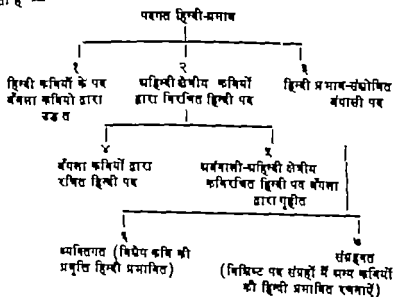 पदगत हिन्दी-प्रभाव
१
हिन्दी कवियों के पद
बँगला कवियों द्वारा
उद्धृत
२
अहिन्दी क्षेत्रीय कवियों
द्वारा विरचित हिन्दी पद
३
हिन्दी प्रभाव-संप्रेषित
बंगाली पद
४
बँगला कवियों द्वारा
रचित हिन्दी पद
५
अबंगाली-अहिन्दी क्षेत्रीय
कविरचित हिन्दी पद बँगला
द्वारा गृहीत
६
व्यक्तिगत (विशेष कवि की
प्रवृत्ति हिन्दी प्रभावित)
७
संग्रहगत
(विशिष्ट पद संग्रहों में अन्य कवियों
की हिन्दी प्रभावित रचनाएँ)